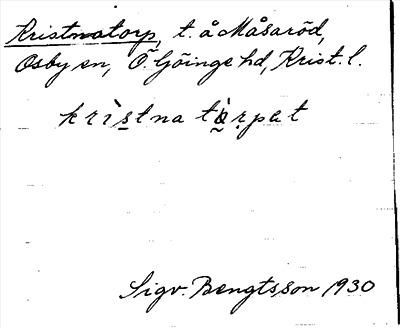 Kristnatorp, t. å Måsaröd,
Osby sn, Ö. Göinge hd, Krist. l.
krìs̱tna tàṛpat
Sigv. Bengtsson 1930